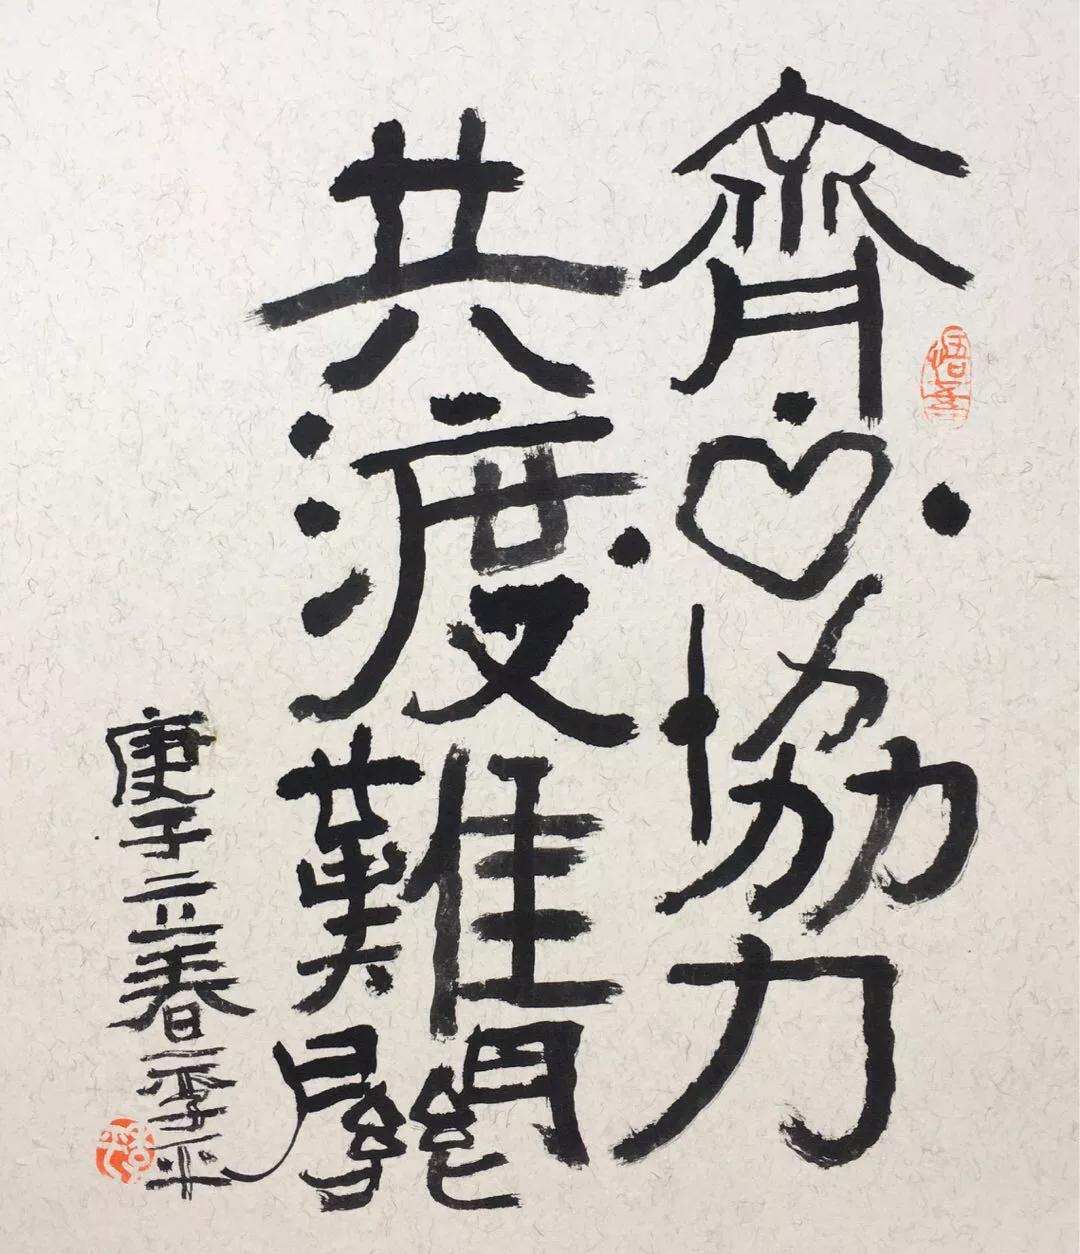 齊心協力
共渡難關
庚子立春
平